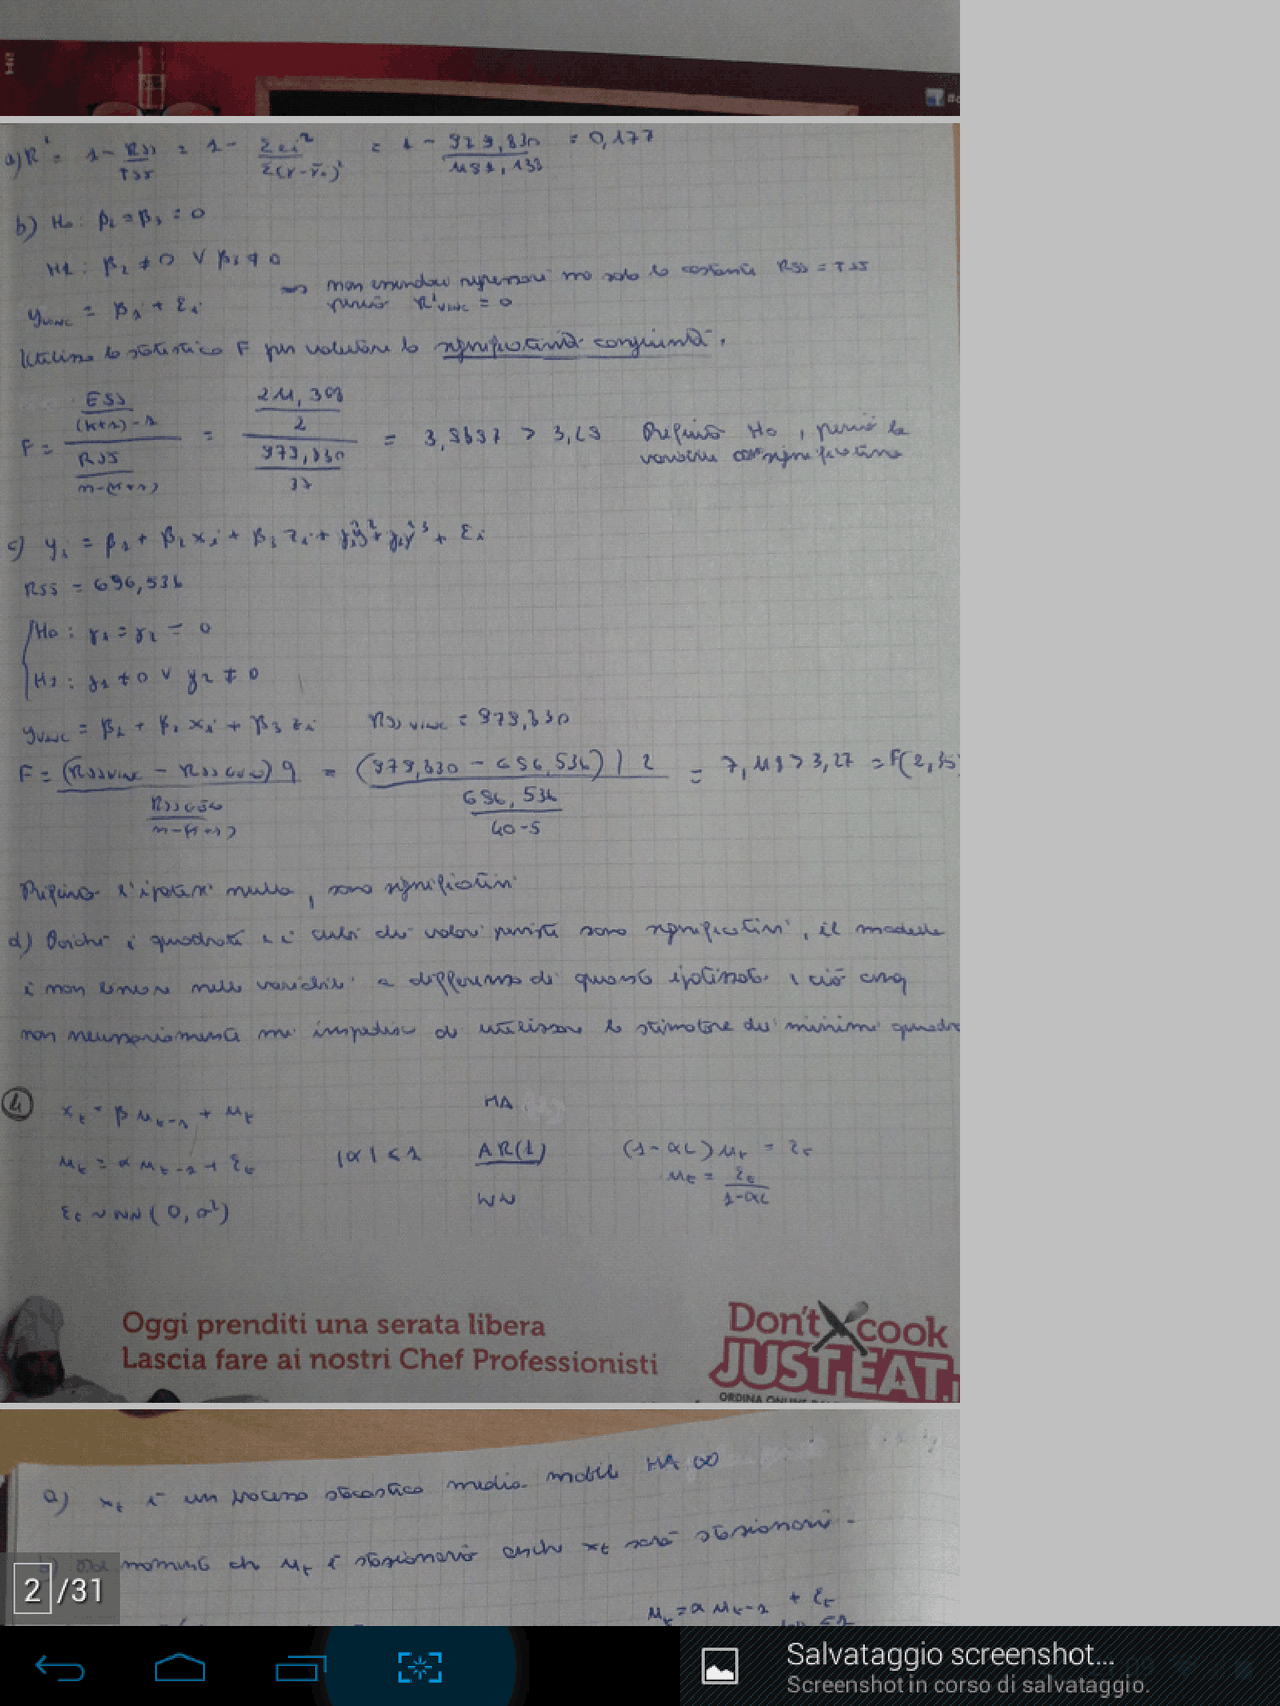 a) R² = 1 - RSS/TSS = 1 - Σei²/Σ(Y-Ȳ.)² = 1 - 979,830/1191,133 = 0,177
b) H0: β2 = β3 = 0
H1: β2 ≠ 0 ∨ β3 ≠ 0
non essendoci regressori ma solo la costante RSS = TSS
perciò R²vinc = 0
yvinc = β1 + εi
Utilizzo la statistica F per valutare la significatività congiunta.
F = (ESS/((k+1)-1)) / (RSS/(n-(k+1))) = (211,303/2) / (979,830/37) = 3,9897 > 3,23 Rifiuto H0, perciò le
variabili significative
c) yi = β1 + β2 xi + β3 zi + γ1ŷ² + γ2ŷ³ + εi
RSS = 696,536
H0: γ1 = γ2 = 0
H1: γ1 ≠ 0 ∨ γ2 ≠ 0
yvinc = β1 + β2 xi + β3 zi RSSvinc = 979,830
F = (RSSvinc - RSS) q / (RSS/(n-(k+1))) = (979,830 - 696,536) / 2 / (696,536/(40-5)) = 7,11 > 3,27 = F(2,35)
Rifiuto l'ipotesi nulla, sono significativi
d) Poiché i quadrati e i cubi dei valori previsti sono significativi, il modello
è non lineare nelle variabili a differenza di quanto ipotizzato e ciò
non necessariamente mi impedisce di utilizzare lo stimatore dei minimi quadra
4 xt = β ut-1 + ut MA
ut = α ut-1 + εt |α| < 1 AR(1) (1-αL) ut = εt
ut = εt/(1-αL)
εt ~ WN(0, σ²) WN
Oggi prenditi una serata libera
Lascia fare ai nostri Chef Professionisti
Don't cook
JUST EAT.
ORDINA ONLINE
a) xt è un processo stocastico media mobile MA ∞
momento che ut è stazionario anche xt sarà stazionario.
ut = α ut-1 + εt
2/31
Salvataggio screenshot...
Screenshot in corso di salvataggio.